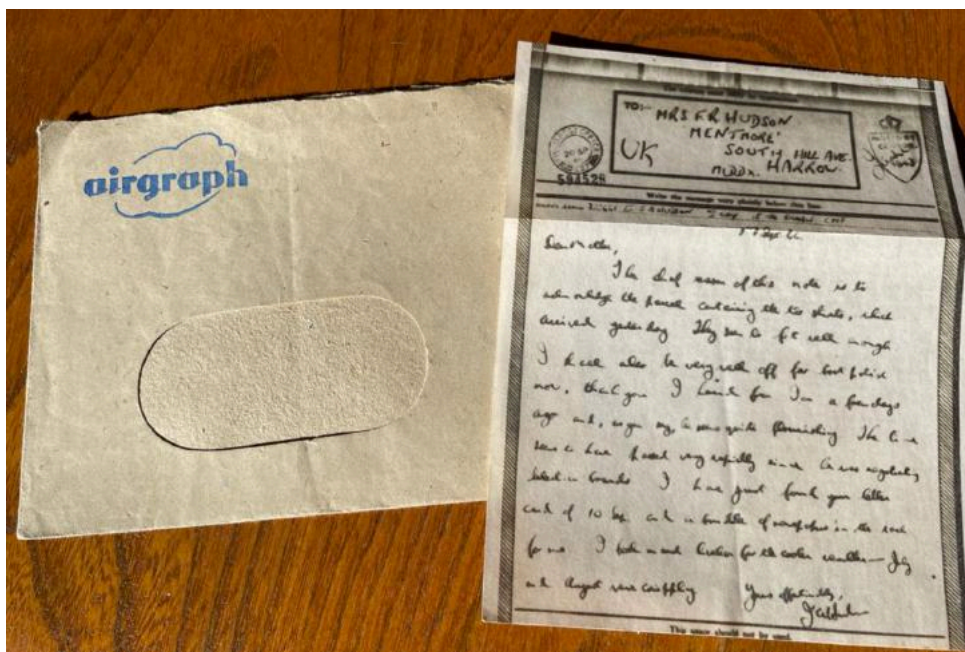 airgraph
TO:- MRS F.R HUDSON
'MENTMORE'
SOUTH HILL AVE.
UK MIDDX. HARROW.
594528
Write the message very plainly below this line.
Dear Mother,
The chief reason of this note is to
acknowledge the parcel containing the two shirts, which
arrived yesterday They seem to fit well enough
I shall also be very well off for boot polish
now, thank you I heard from Ian a few days
ago and, as you say, he seems quite flourishing The time
seems to have passed very rapidly since he was
I have just found your letter
card of 10 Sep and a bundle of newspapers in the rack
for me I look forward for the cooler weather — July
and August were crippling Yours affectionately,
This space should not be used.